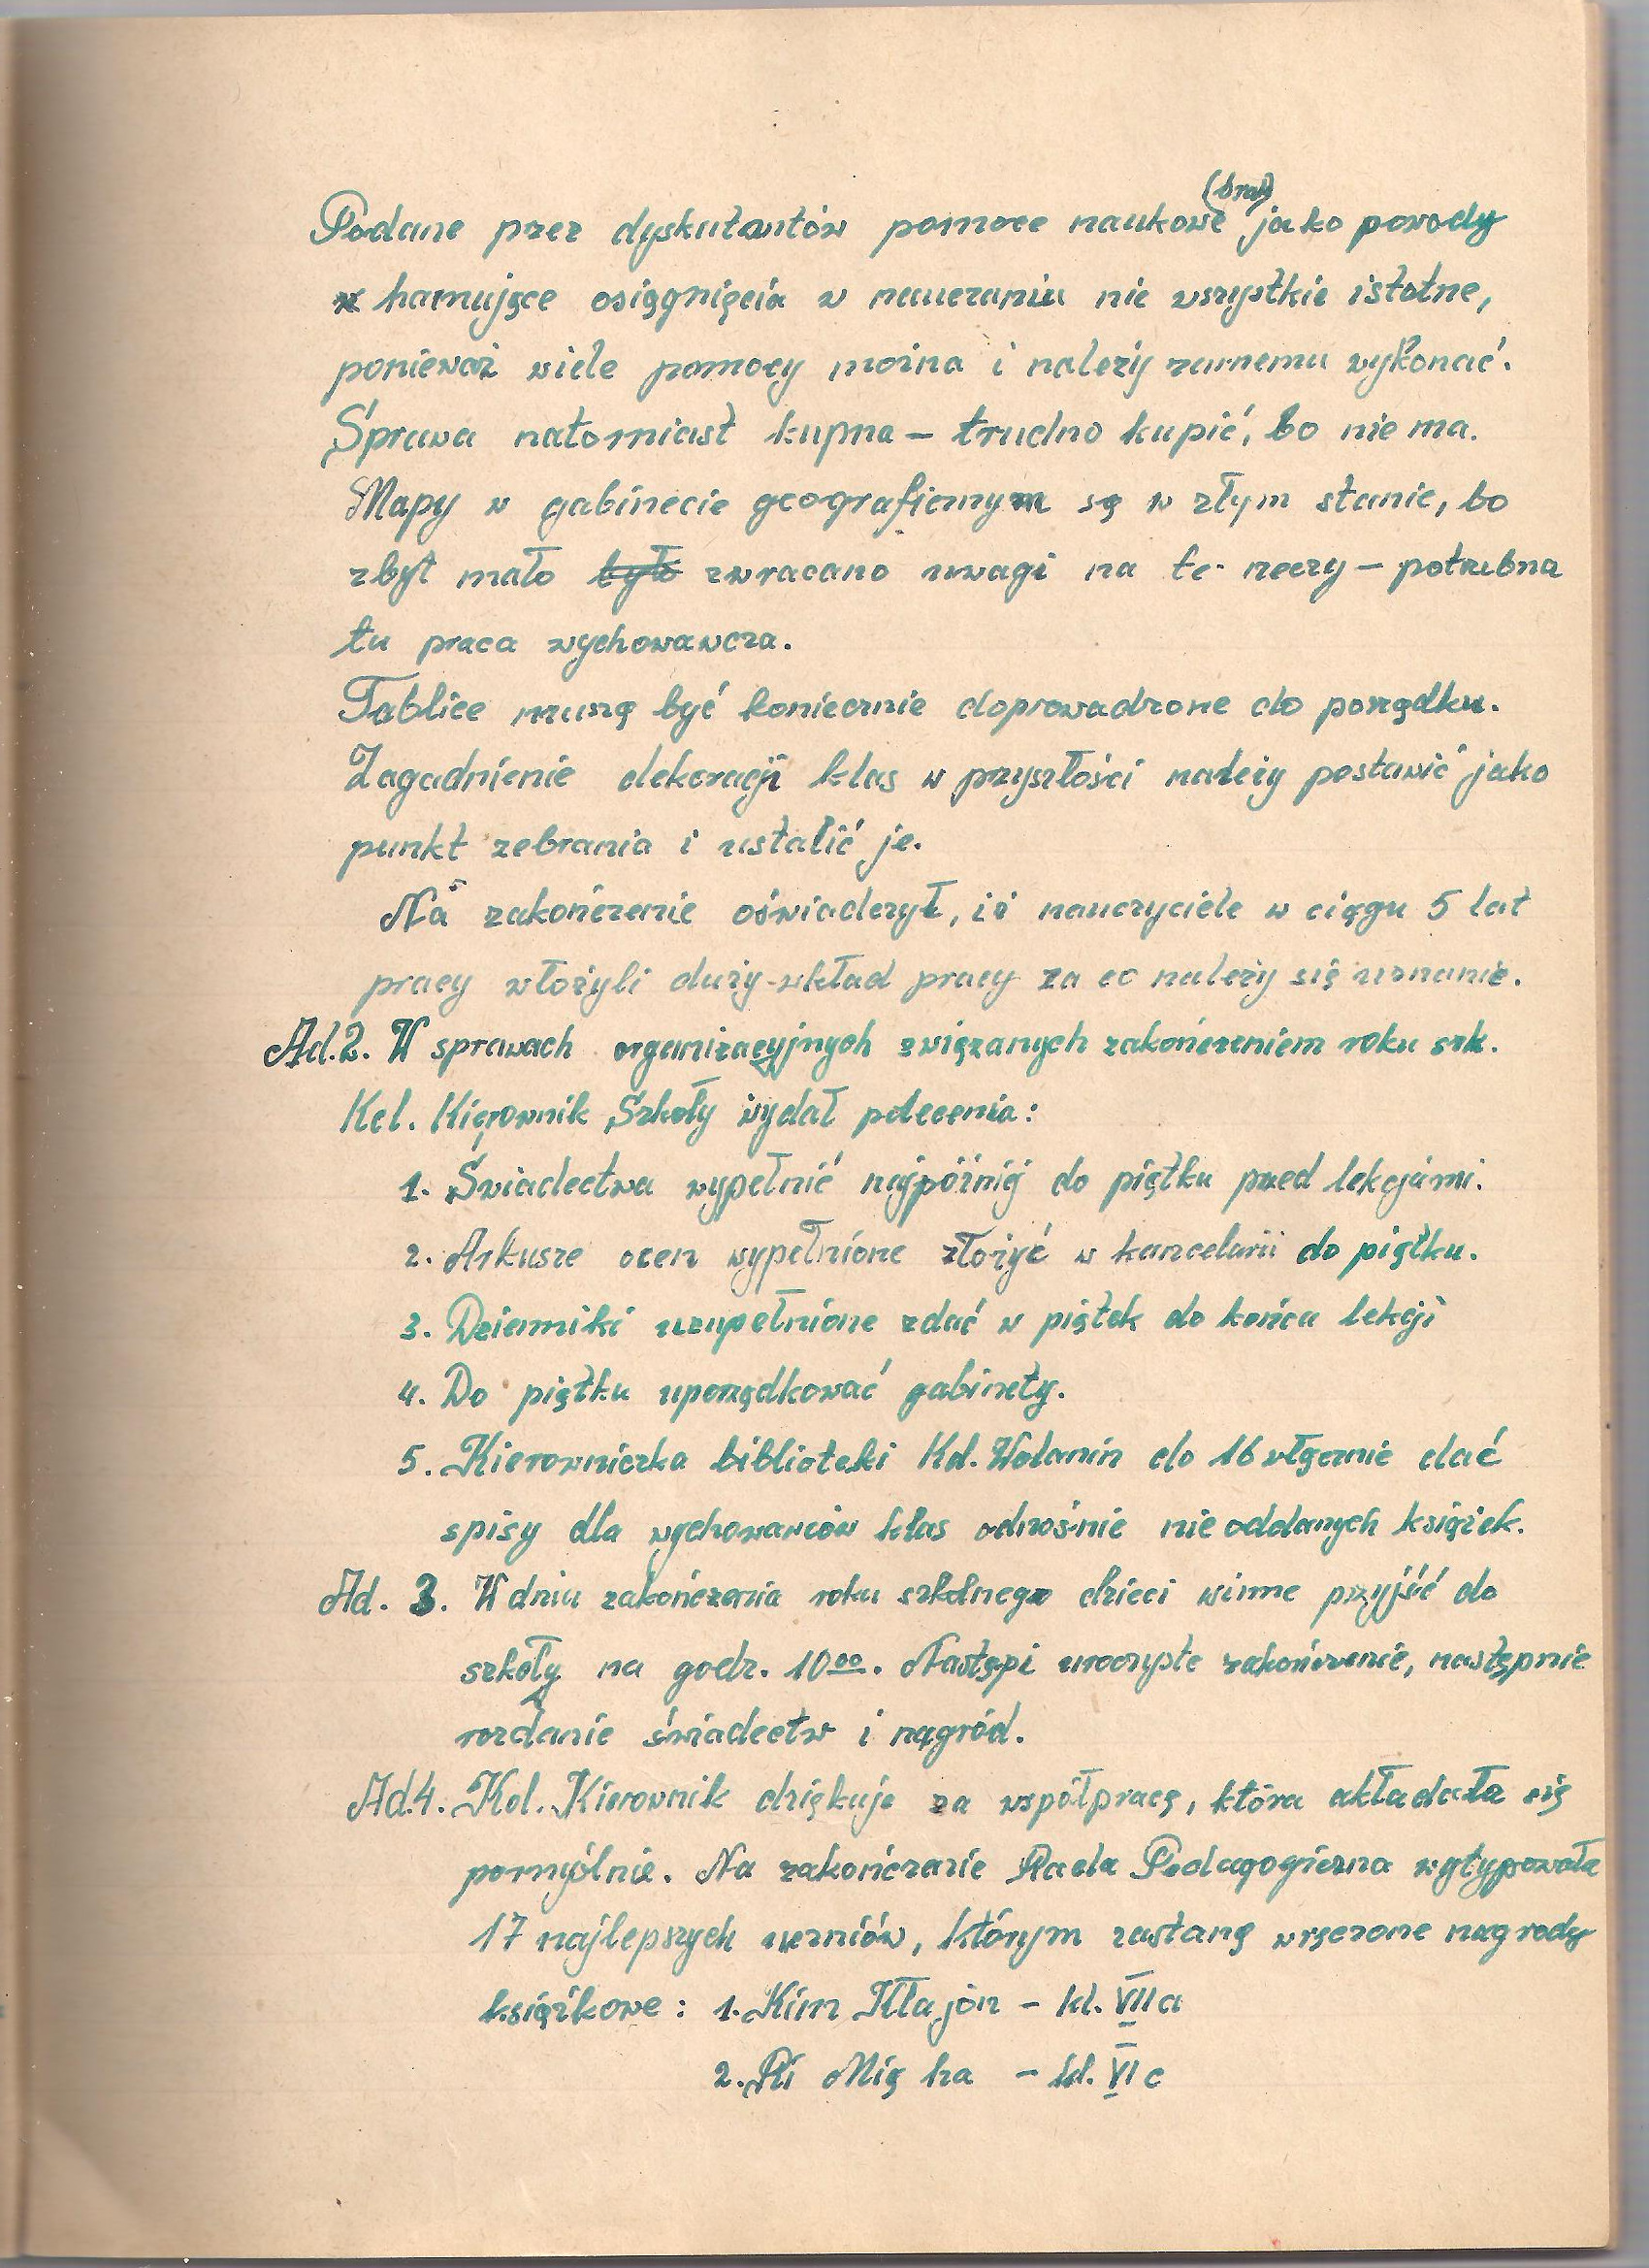 (brak)
Podane przez dyskutantów pomoce naukowe jako powody
hamujące osiągnięcia w nauczaniu nie wszystkie istotne,
ponieważ wiele pomocy można i należy samemu wykonać.
Sprawa natomiast kupna – trudno kupić, bo nie ma.
Mapy w gabinecie geograficznym są w złym stanie, bo
zbyt mało było zwracano uwagi na te rzeczy – potrzebna
tu praca wychowawcza.
Tablice muszą być koniecznie doprowadzone do porządku.
Zagadnienie dekoracji klas w przyszłości należy postawić jako
punkt zebrania i ustalić je.
Na zakończenie oświadczył, iż nauczyciele w ciągu 5 lat
pracy włożyli duży wkład pracy za co należy się uznanie.
Ad.2. W sprawach organizacyjnych związanych zakończeniem roku szk.
Kol. Kierownik Szkoły wydał polecenia:
1. Świadectwa wypełnić najpóźniej do piątku przed lekcjami.
2. Arkusze ocen wypełnione złożyć w kancelarii do piątku.
3. Dzienniki uzupełnione zdać w piątek do końca lekcji
4. Do piątku uporządkować gabinety.
5. Kierowniczka biblioteki Kol. Wolanin do 16 włącznie dać
spisy dla wychowawców klas odnośnie nie oddanych książek.
Ad. 3. W dniu zakończenia roku szkolnego dzieci winne przyjść do
szkoły na godz. 10⁰⁰. Nastąpi uroczyste zakończenie, następnie
rozdanie świadectw i nagród.
Ad.4. Kol. Kierownik dziękuje za współpracę, która układała się
pomyślnie. Na zakończenie Rada Pedagogiczna wytypowała
17 najlepszych uczniów, którym zostaną wręczone nagrody
książkowe: 1. Kim Hłajön – kl. VII a
2. Ri Mię ha – kl. VI c